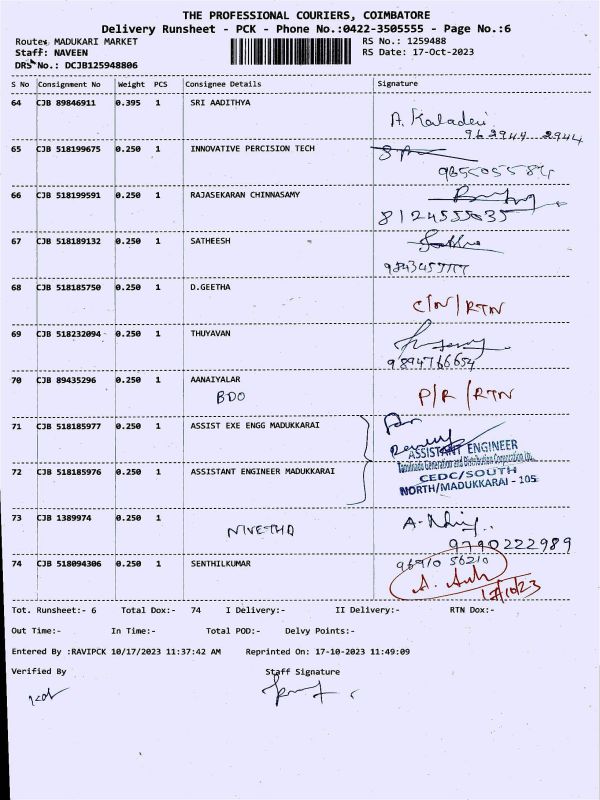 THE PROFESSIONAL COURIERS, COIMBATORE
Delivery Runsheet - PCK - Phone No.:0422-3505555 - Page No.:6
Route: MADUKARI MARKET RS No.: 1259488
Staff: NAVEEN RS Date: 17-Oct-2023
DRS No.: DCJB125948806
S No Consignment No Weight PCS Consignee Details Signature
64 CJB 89846911 0.395 1 SRI AADITHYA
A. Kaladevi
963944 2944
65 CJB 518199675 0.250 1 INNOVATIVE PERCISION TECH
9655055584
66 CJB 518199591 0.250 1 RAJASEKARAN CHINNASAMY
8124555035
67 CJB 518189132 0.250 1 SATHEESH
68 CJB 518185750 0.250 1 D.GEETHA
C/N/RTN
69 CJB 518232094 0.250 1 THUYAVAN
9894766654
70 CJB 89435296 0.250 1 AANAIYALAR
BDO P/R/RTN
71 CJB 518185977 0.250 1 ASSIST EXE ENGG MADUKKARAI
For
ASSISTANT ENGINEER
Tamilnadu Generation and Distribution Corporation Ltd.,
72 CJB 518185976 0.250 1 ASSISTANT ENGINEER MADUKKARAI
CEDC/SOUTH
NORTH/MADUKKARAI - 105
73 CJB 1389974 0.250 1
NIVETHA
9790222989
74 CJB 518094306 0.250 1 SENTHILKUMAR
96910 56210
17/10/23
Tot. Runsheet:- 6 Total Dox:- 74 I Delivery:- II Delivery:- RTN Dox:-
Out Time:- In Time:- Total POD:- Delvy Points:-
Entered By :RAVIPCK 10/17/2023 11:37:42 AM Reprinted On: 17-10-2023 11:49:09
Verified By Staff Signature